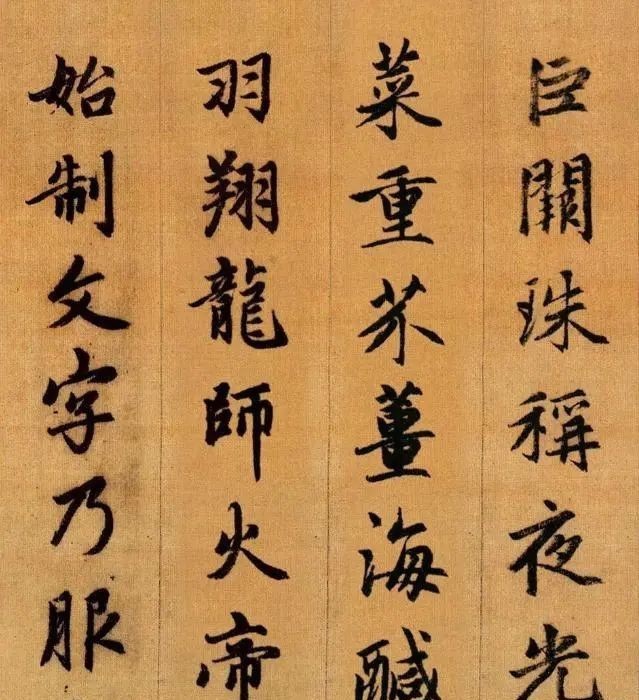 巨闕珠稱夜光
菜重芥薑海醎
羽翔龍師火帝
始制文字乃服